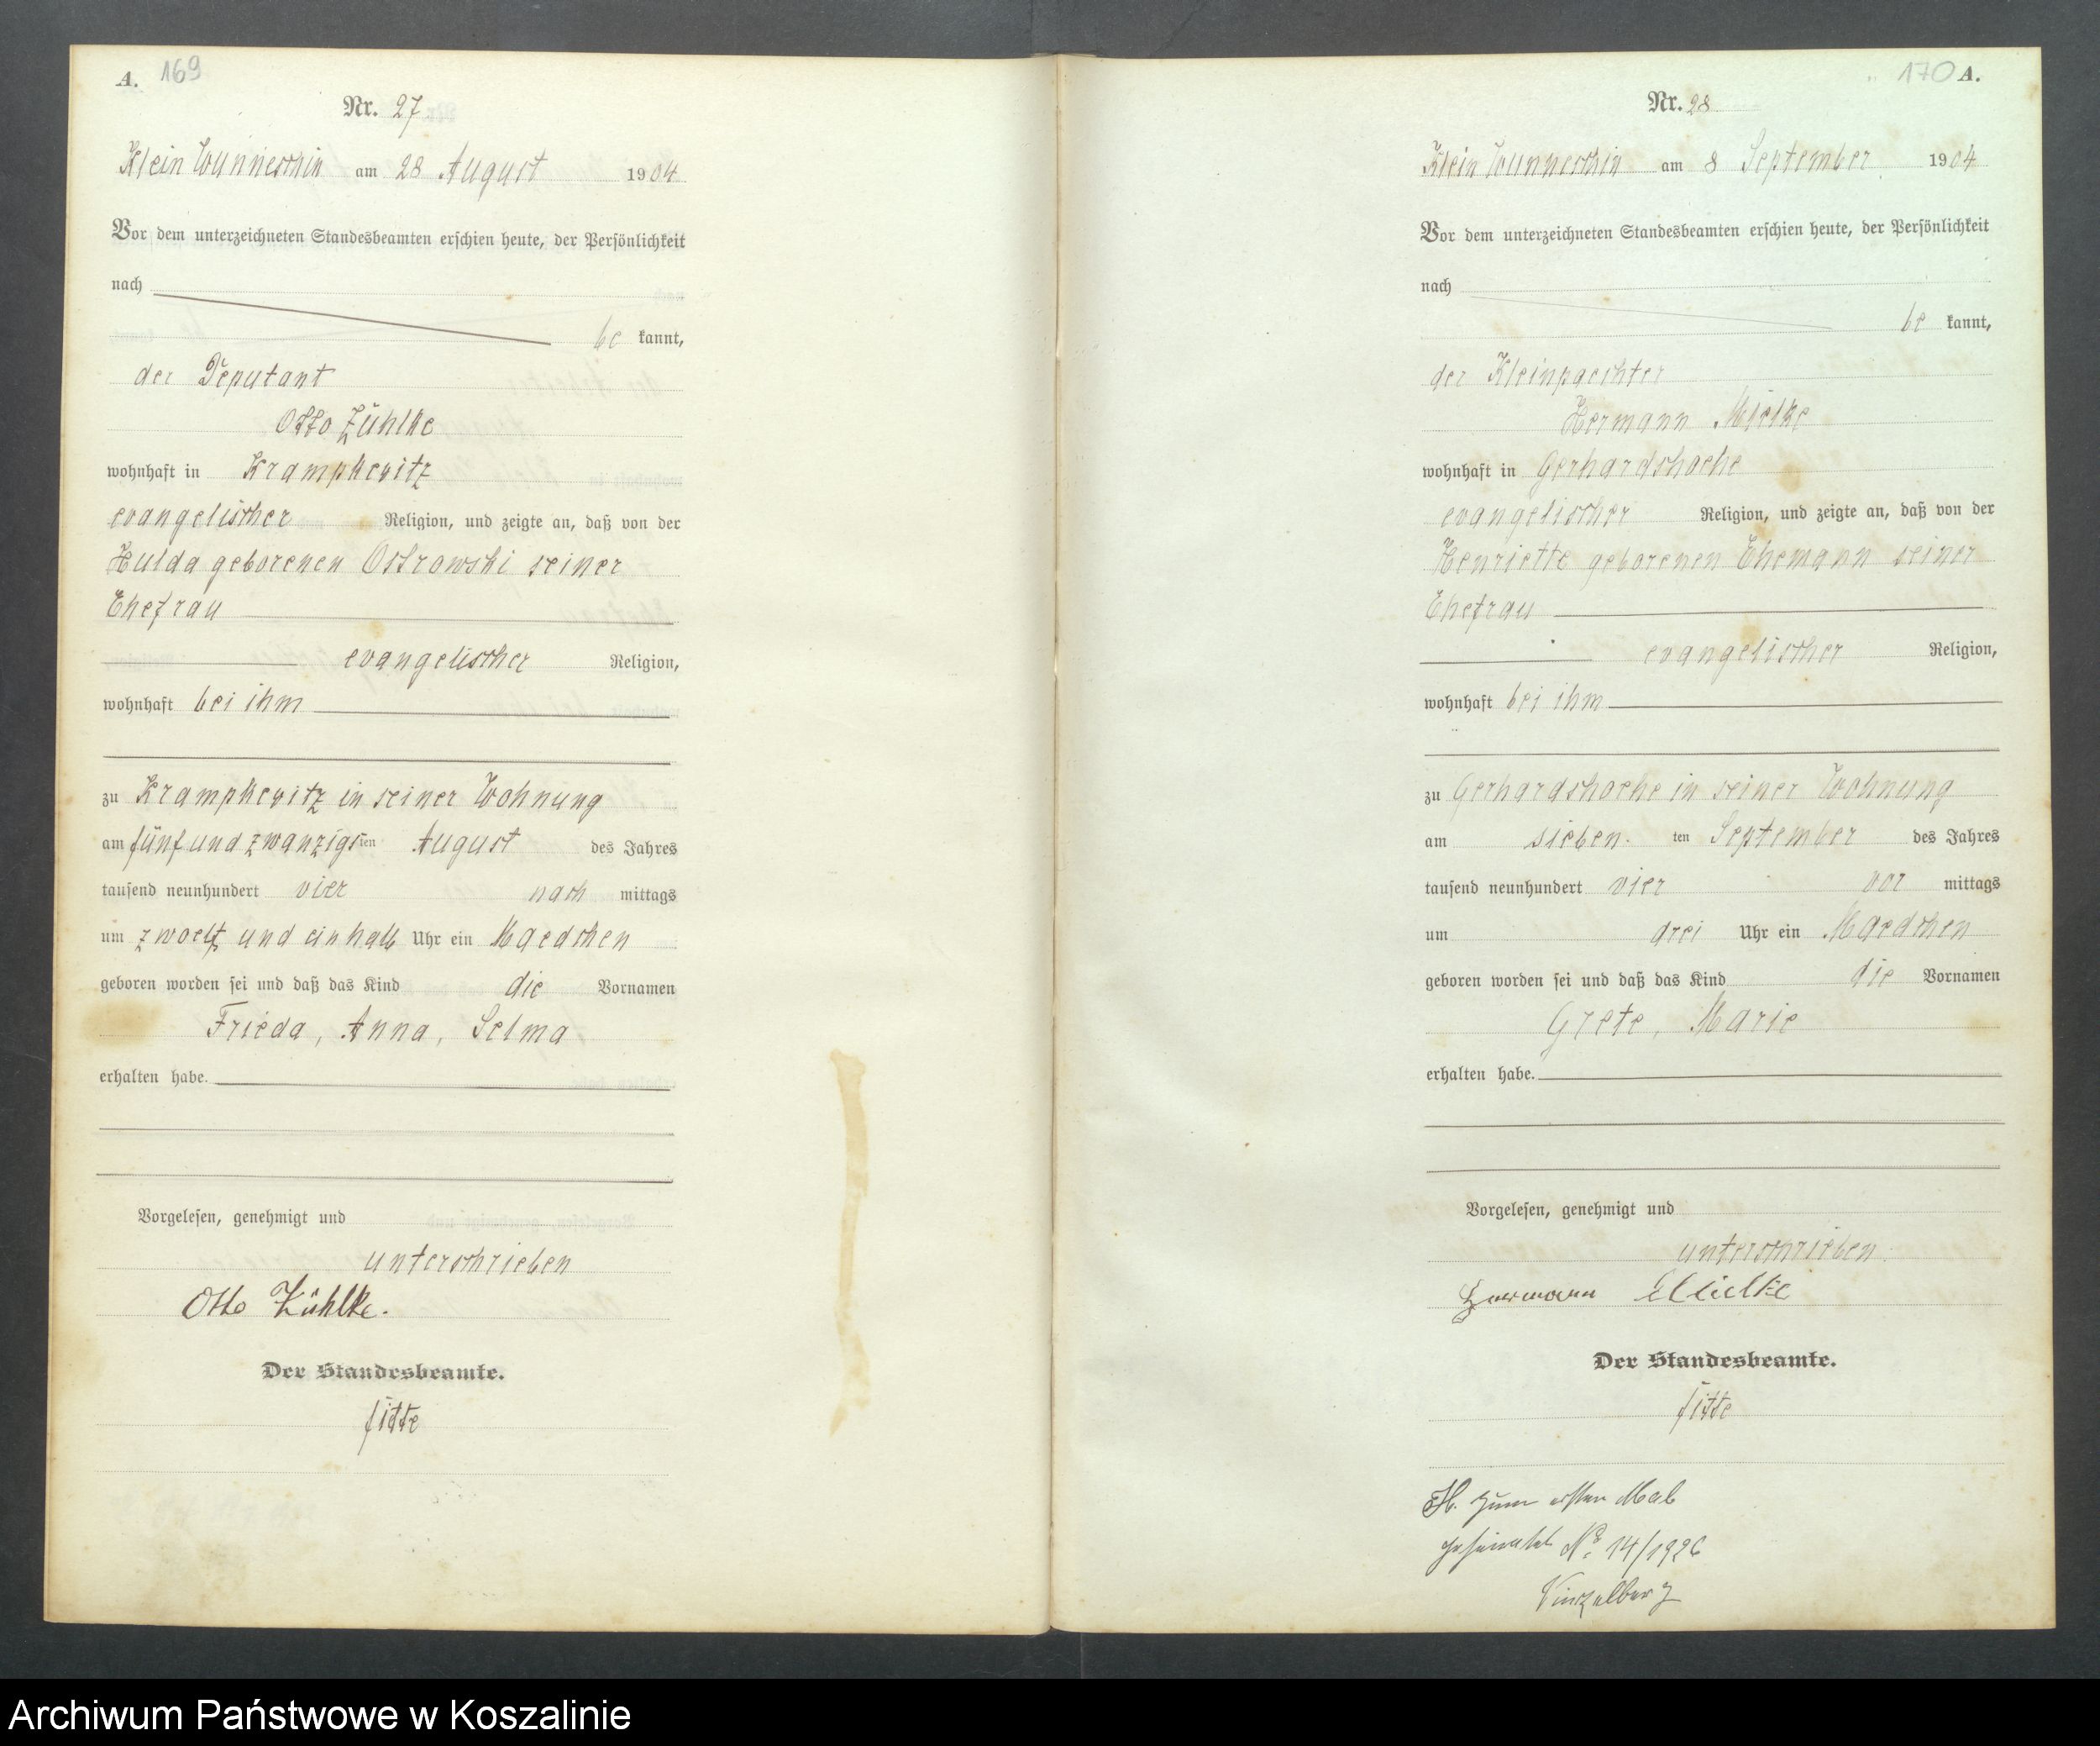 A. 169
Nr. 27
Klein Wunneschin am 28 August 1904
Vor dem unterzeichneten Standesbeamten erschien heute, der Persönlichkeit
nach
be kannt,
der Deputant
Otto Zühlke
wohnhaft in Krampkewitz
evangelischer Religion, und zeigte an, daß von der
Hulda geborenen Ostrowski seiner
Ehefrau
evangelischer Religion,
wohnhaft bei ihm
zu Krampkewitz in seiner Wohnung
am fünf und zwanzigsten August des Jahres
tausend neunhundert vier nach mittags
um zwoelf und einhalb Uhr ein Maedchen
geboren worden sei und daß das Kind die Vornamen
Frieda, Anna, Selma
erhalten habe.
Vorgelesen, genehmigt und
unterschrieben
Otto Zühlke.
Der Standesbeamte.
Fitte
170 A.
Nr. 28
Klein Wunneschin am 8 September 1904
Vor dem unterzeichneten Standesbeamten erschien heute, der Persönlichkeit
nach
be kannt,
der Kleinpaechter
Hermann Mielke
wohnhaft in Gerhardshoehe
evangelischer Religion, und zeigte an, daß von der
Henriette geborenen Ehemann seiner
Ehefrau
evangelischer Religion,
wohnhaft bei ihm
zu Gerhardshoehe in seiner Wohnung
am sieben. ten September des Jahres
tausend neunhundert vier vor mittags
um drei Uhr ein Maedchen
geboren worden sei und daß das Kind die Vornamen
Grete, Marie
erhalten habe.
Vorgelesen, genehmigt und
unterschrieben.
Hermann Mielke
Der Standesbeamte.
Fitte
H. zum ersten Mal
geheiratet No 14/1926
Archiwum Państwowe w Koszalinie